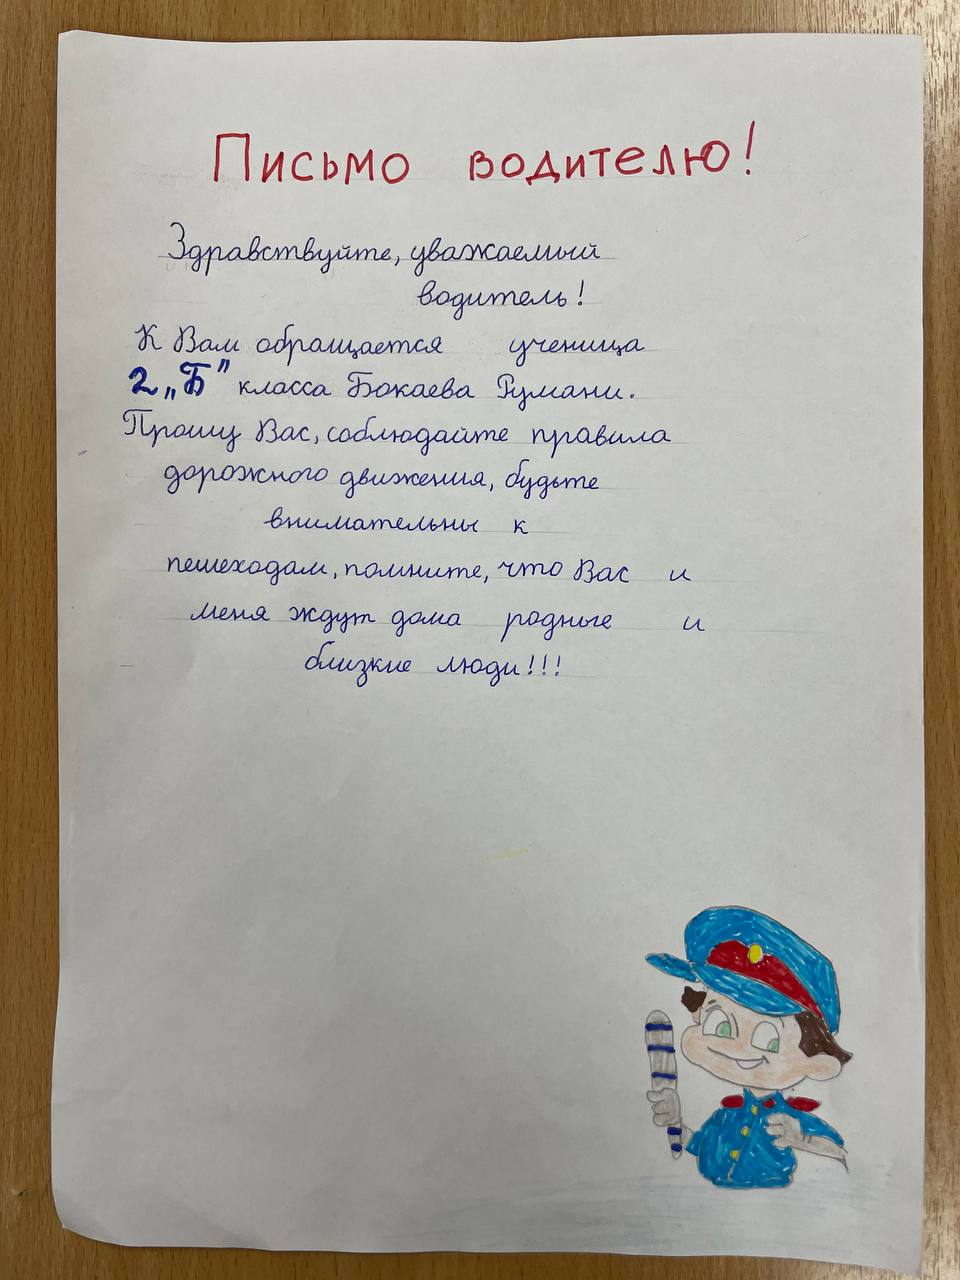 Письмо водителю!
Здравствуйте, уважаемый
водитель!
К Вам обращается ученица
2 „Б" класса Бокаева Румани.
Прошу Вас, соблюдайте правила
дорожного движения, будьте
внимательны к
пешеходам, помните, что Вас и
меня ждут дома родные и
близкие люди!!!